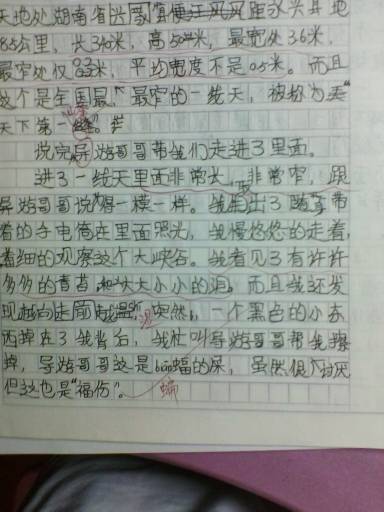 天地处湖南省 距永兴县地
85公里，长340米，高50米，最宽处3.6米，
最窄处仅0.33米，平均宽度不足0.5米。而且
这个是全国最长、最窄的一线天，被称为
天下第一
说完导游哥哥带我们走进了里面。
进了一线天里面非常长，非常窄，跟
导游哥哥说得一模一样。我拿出了随手带
着的手电筒在里面照光，我慢悠悠的走着，
看细的观察这个大峡谷。我看见了有许许
多多的青苔，和大大小小的洞，而且我还发
现越向走 越湿，突然，一个黑色的小东
西掉在了我背后，我忙叫导游哥哥帮我擦
掉，导游哥哥这是bian蝠的屎，虽然很讨厌
但这也是“福伤”。
蝙